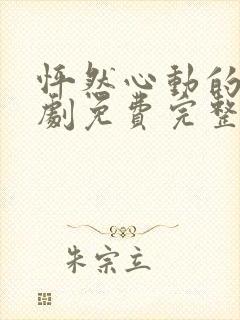 怦然心動的
劇免費完整
朱宗立